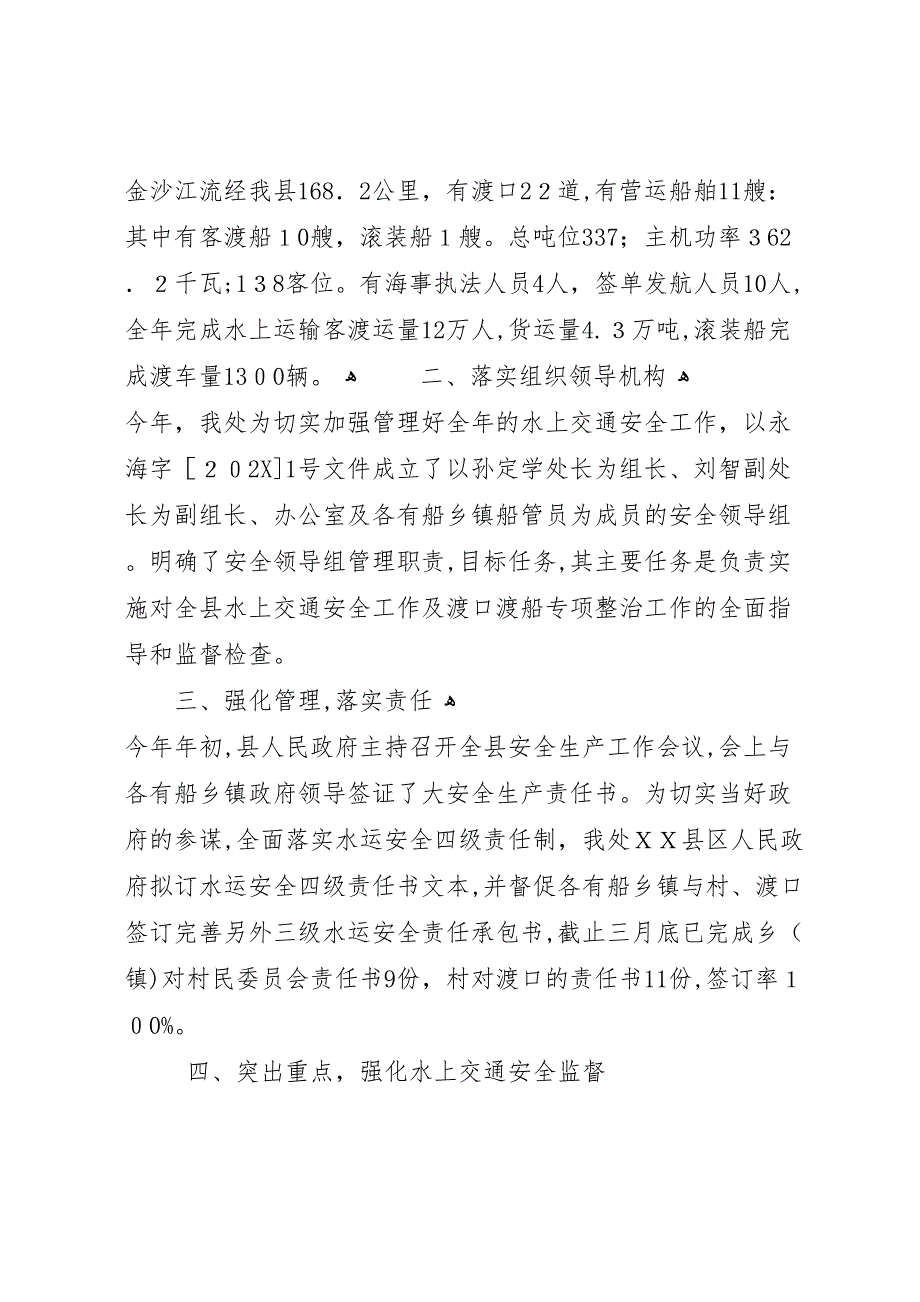 金沙江流经我县168．2公里，有渡口2２道,有营运船舶11艘：
其中有客渡船１0艘，滚装船１艘。总吨位337；主机功率３62
．２千瓦;1３8客位。有海事执法人员4人，签单发航人员10人,
全年完成水上运输客渡运量12万人,货运量4.３万吨,滚装船完
成渡车量13００辆。 ﻫ 二、落实组织领导机构 ﻫ
今年，我处为切实加强管理好全年的水上交通安全工作，以永
海字［２０2X]1号文件成立了以孙定学处长为组长、刘智副处
长为副组长、办公室及各有船乡镇船管员为成员的安全领导组
。明确了安全领导组管理职责,目标任务,其主要任务是负责实
施对全县水上交通安全工作及渡口渡船专项整治工作的全面指
导和监督检查。
三、强化管理,落实责任 ﻫ
今年年初,县人民政府主持召开全县安全生产工作会议,会上与
各有船乡镇政府领导签证了大安全生产责任书。为切实当好政
府的参谋,全面落实水运安全四级责任制，我处ＸＸ县区人民政
府拟订水运安全四级责任书文本,并督促各有船乡镇与村、渡口
签订完善另外三级水运安全责任承包书,截止三月底已完成乡（
镇)对村民委员会责任书9份，村对渡口的责任书11份,签订率１
０0%。
四、突出重点，强化水上交通安全监督